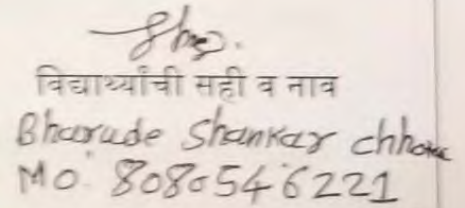 विद्यार्थ्यांची सही व नाव
Bharude Shankar
Mo. 8080546221